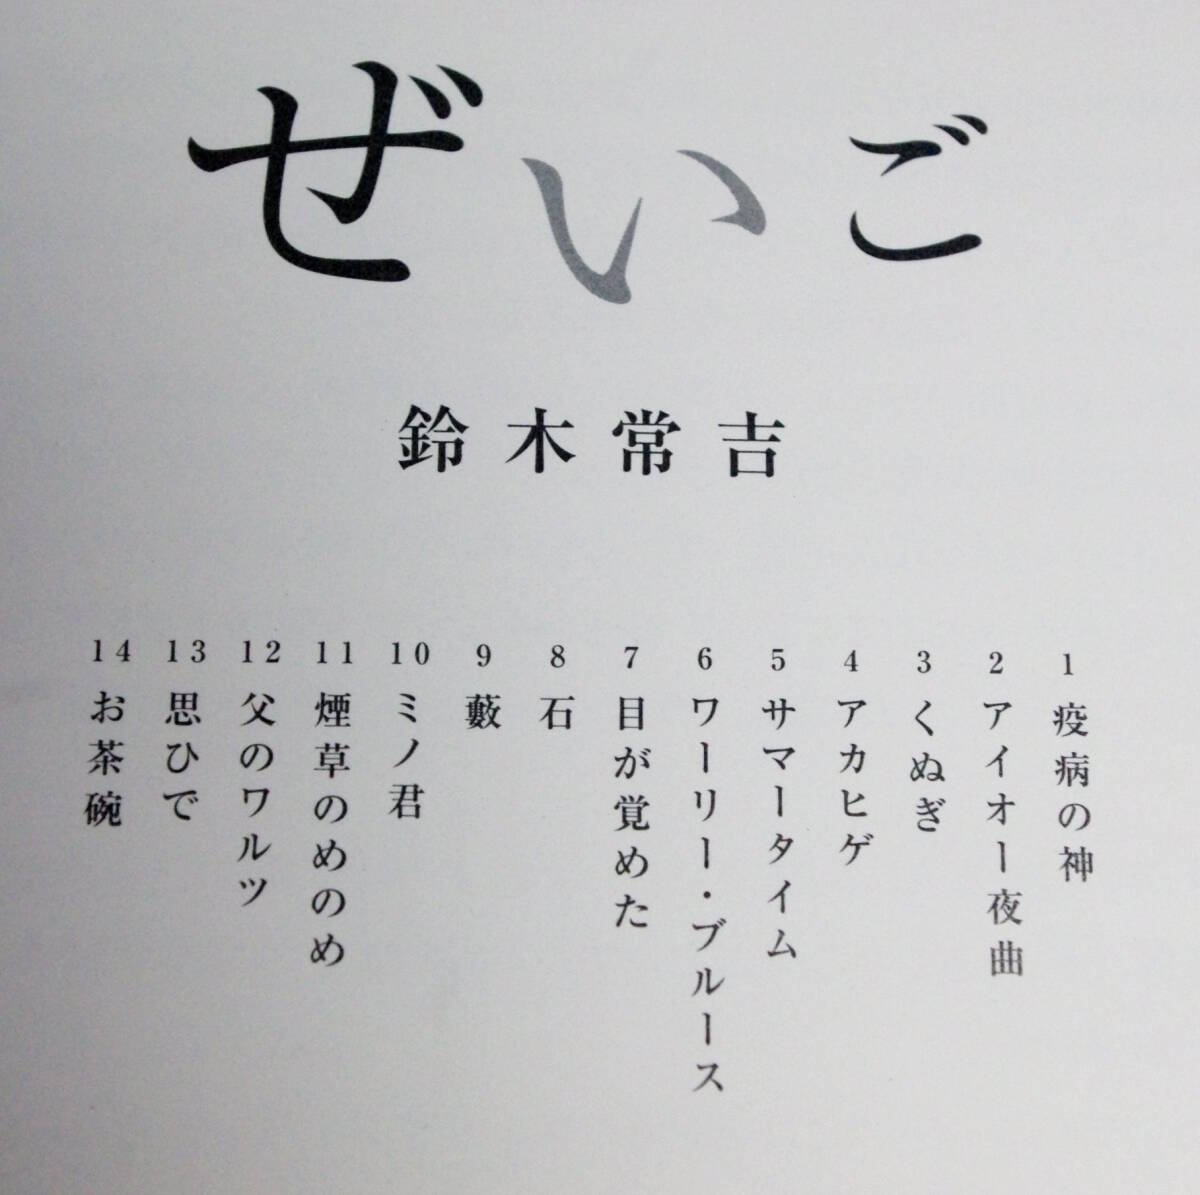 ぜいご
鈴木常吉
1 疫病の神
2 アイオー夜曲
3 くぬぎ
4 アカヒゲ
5 サマータイム
6 ワーリー・ブルース
7 目が覚めた
8 石
9 藪
10 ミノ君
11 煙草のめのめ
12 父のワルツ
13 思ひで
14 お茶碗